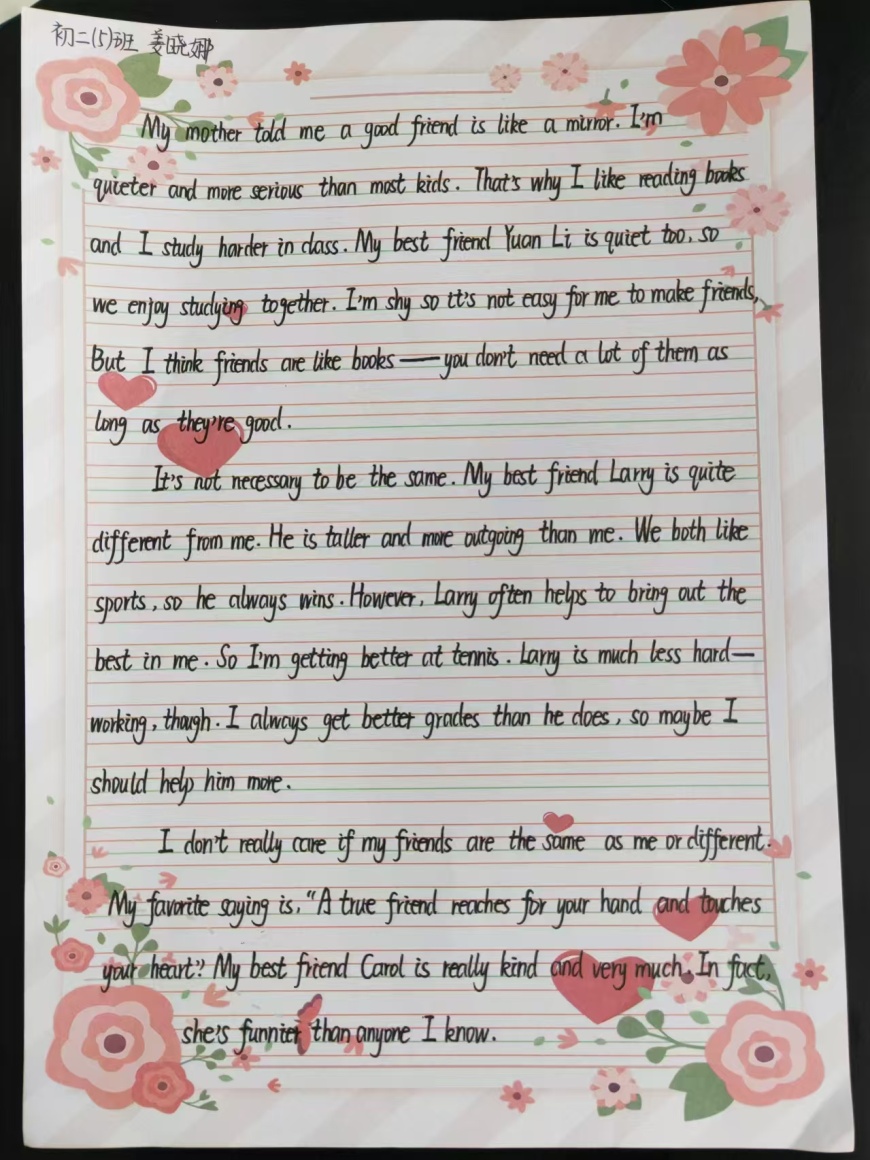 初二(5)班 姜晓娜
My mother told me a good friend is like a mirror. I'm
quieter and more serious than most kids. That's why I like reading books
and I study harder in class. My best friend Yuan Li is quiet too, so
we enjoy studying together. I'm shy so tt's not easy for me to make friends,
But I think friends are like books —— you don't need a lot of them as
long as they're good.
It's not necessary to be the same. My best friend Larry is quite
different from me. He is taller and more outgoing than me. We both like
sports, so he always wins. However, Larry often helps to bring out the
best in me. So I'm getting better at tennis. Larry is much less hard—
working, though. I always get better grades than he does, so maybe I
should help him more.
I don't really care if my friends are the same as me or different.
My favorite saying is, "A true friend reaches for your hand and touches
your heart". My best friend Carol is really kind and very much. In fact,
she's funnier than anyone I know.